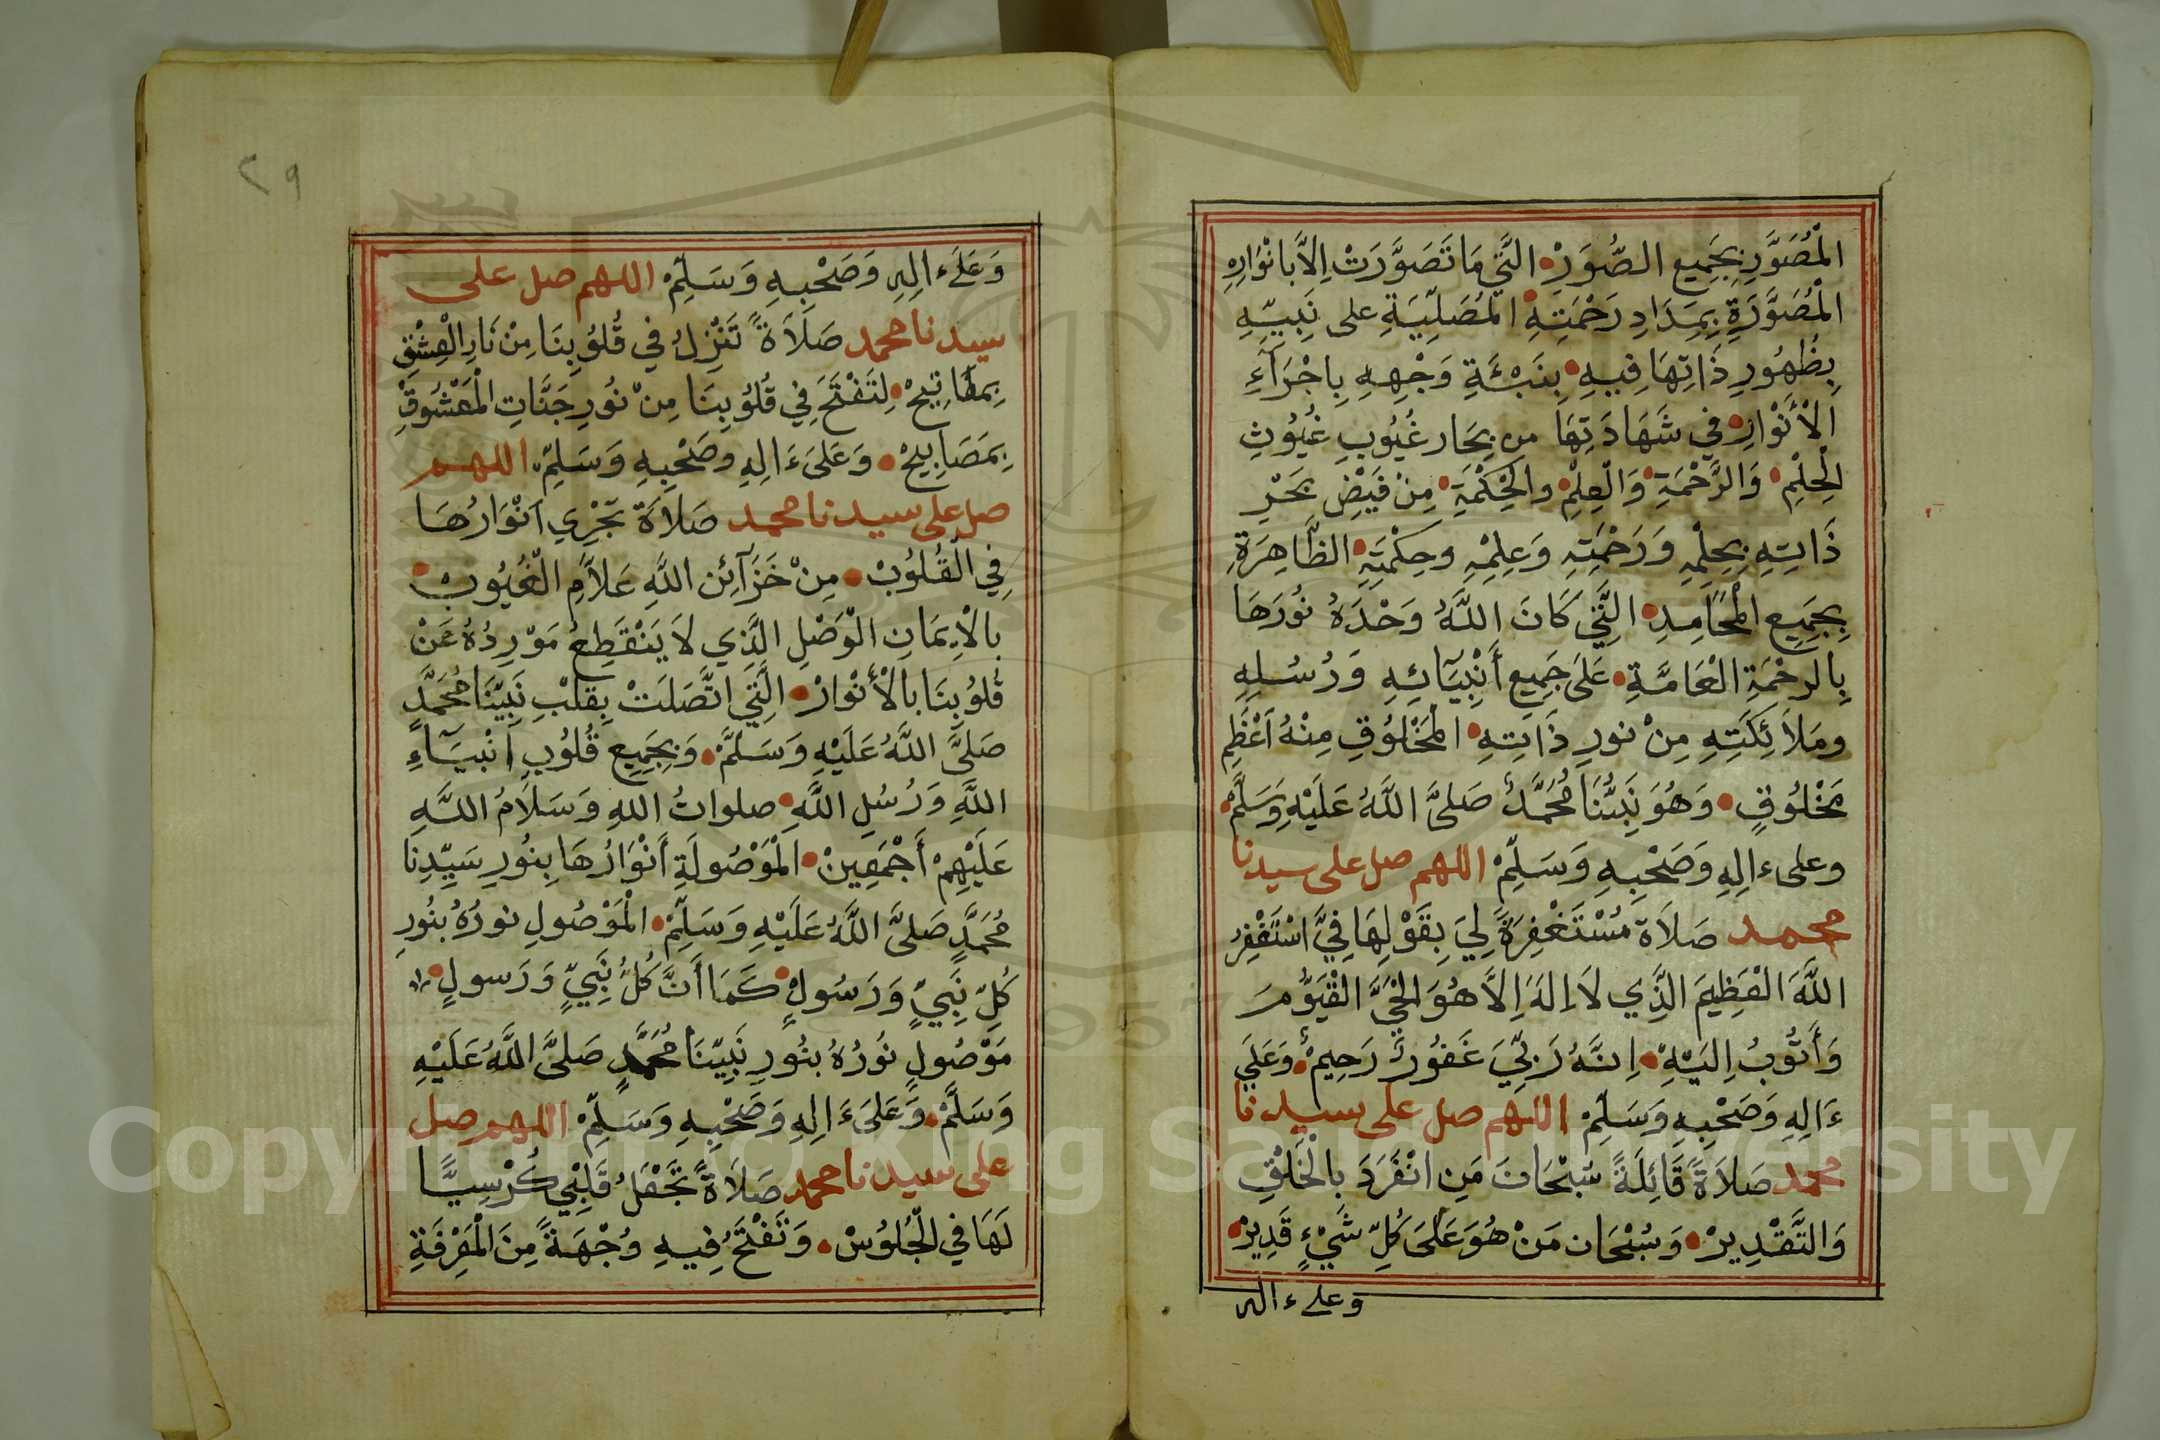 الْمُصَوَّرِ بِجَمِيعِ الصُّوَرِ التَّي مَا تَصَوَّرَتْ اِلاَّ بِاَنْوَارِهِ
الْمُصَوَّرَةِ بِمِدَادِ رَحْمَتِهِ الْمُصَلِّيَةِ على نَبِيِّهِ
بِظُهُورِ ذَاتِهَا فِيهِ بِنَبْـَٔةِ وَجْهِهِ بِاِجْرَآءِ
الْأَنْوَارِ فِي شَهَادَتِهَا من بِحَارِ غُيُوبِ غُيُوثِ
الْحِلْمِ وَالرَّحْمَةِ وَالْعِلْمِ والْحِكْمَةِ مِنْ فَيْضِ بَحْرِ
ذَاتِهِ بِحِلْمِهِ وَرَحْمَتِهِ وَعِلِمْهِ وحِكْمَتِهِ الظَّاهِرَةِ
بِجَمِيعِ الْمَحَامِدِ الَّتِي كَانَ اللَّهُ وَحْدَهُ نُورَهَا
بِالرحْمَةِ الْعَامَّةِ عَلَى جَمِيعِ أَنْبِيَآئِهِ وَرُسُلِهِ
ومَلاَئِكَتِهِ مِنْ نورِ ذَاتِهِ الْمَخْلُوقِ مِنْهُ اَعْظَمِ
مَخْلُوقٍ وَهُوَ نَبِيُّنَا مُحَمَّدٌ صَلىَّ اللَّهُ عَلَيْهِ وَسَلَّمْ
وعلىء الِهِ وَصَحْبِهِ وَسَلِّمْ اللهم صل على سيدنا
محمد صَلاَة مُسْتَغْفِرَةً لِيَ بِقَوْلِهَا فِيَّ اسْتَغْفِرُ
اللَّهَ الْعَظِيمَ الَّذِي لاَ اِلهَ اِلاَّ هُوَ الْحَيَّ الْقَيُّومَ
وَأَتُوبُ اِلَيْهِ اِنَّهُ رَبِّيَ غَفُورٌ رَحِيمْ وَعَلَي
ءَالِهِ وَصَحْبِهِ وَسَلِّمْ اللهم صل على سيدنا
محمد صَلاَةً قَائِلَةً سُبْحَانَ مَنِ انْفَرَدَ بالْخَلْقِ
وَالتَّقْدِيرْ وَسُبْحَان مَنْ هُوَ عَلَى كُلِّ شَيْءٍ قَدِيرْ
وعلے ء اله
٢٩
وَعَلَىء الِهِ وَصَحْبِهِ وَسَلِّمْ اللهم صل على
سيدنا محمد صَلاَةً تَنْزِلُ فِي قُلُوبِنَا مِنْ نَارِ الْعِشْقِ
بِمفَاتِيحْ لِتَفْتَحَ فِي قُلُوبِنَا مِنْ نُورِ جَنَّاتِ الْمَعْشُوقْ
بِمَصَابِيحْ وَعَلىَ ءَالِهِ وصَحْبِهِ وَسَلِّمْ اللهم
صل على سيدنا محمد صَلاَةً تَجْرِي اَنْوَارُهَا
فِي الْقُلُوبْ مِنْ خَزَآئِنِ اللَّهِ عَلاَّمِ الْغُيُوبْ
بالْاِيمَانِ الْوَصْلِ الَّذِي لاَ يَنْقَطِعُ مَوْرِدُهُ عَنْ
قُلُوبِنَا بالْأَنْوَارْ الَّتِي اتَّصَلَتْ بِقَلْبِ نَبِيِّنَا مُحَمَّدٍ
صَلىَّ اللَّهُ عَلَيْهِ وَسَلَّمْ وَبِجَمِيعِ قُلُوبِ اَنْبِيَآءِ
اللَّهِ وَرُسُلِ اللَّهِ صلواتُ اللهِ وَسَلاَمُ اللَّهِ
عَلَيْهِمْ أَجْمَعِينْ الْمَوْصُولَةِ أَنْوَارُهَا بِنُورِ سَيِّدِنَا
مُحَمَّدٍ صَلىَّ اللَّهُ عَلَيْهِ وَسَلِّمْ الْمَوْصُولِ نورُهُ بنُورِ
كُلِّ نَبِيٍّ وَرَسُولٍ كَمَا أَنَّ كُلَّ نَبِيٍّ وَرَسولٍ
مَوْصُولٍ نُورُهُ بنُورِ نَبِيِّنَا مُحَمَّدٍ صَلىَّ اللَّهُ عَلَيْهِ
وَسَلَّمْ وَعَلىَ ءَالِهِ وَصَحْبِهِ وَسَلِّمْ اللهم صل
على سيدنا محمد صَلاَةً تَجْعَلُ قَلْبِي كُرْسِيًّا
لَهَا فِي الْجُلُوسْ وَتَفْتَحُ فِيهِ وُجْهَةً مِنَ الْمَعْرِفَةِ
Copyright © King Saud University
1957